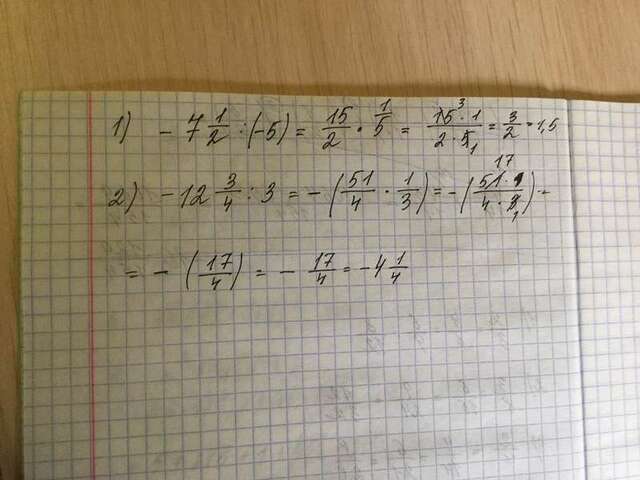 1) - 7 1/2 : (-5) = 15/2 · 1/5 = 15 3 · 1 / 2 · 5 1 = 3/2 = 1,5
2) -12 3/4 : 3 = - (51/4 · 1/3) = - (51 17 · 1 / 4 · 3 1) =
= - (17/4) = - 17/4 = -4 1/4